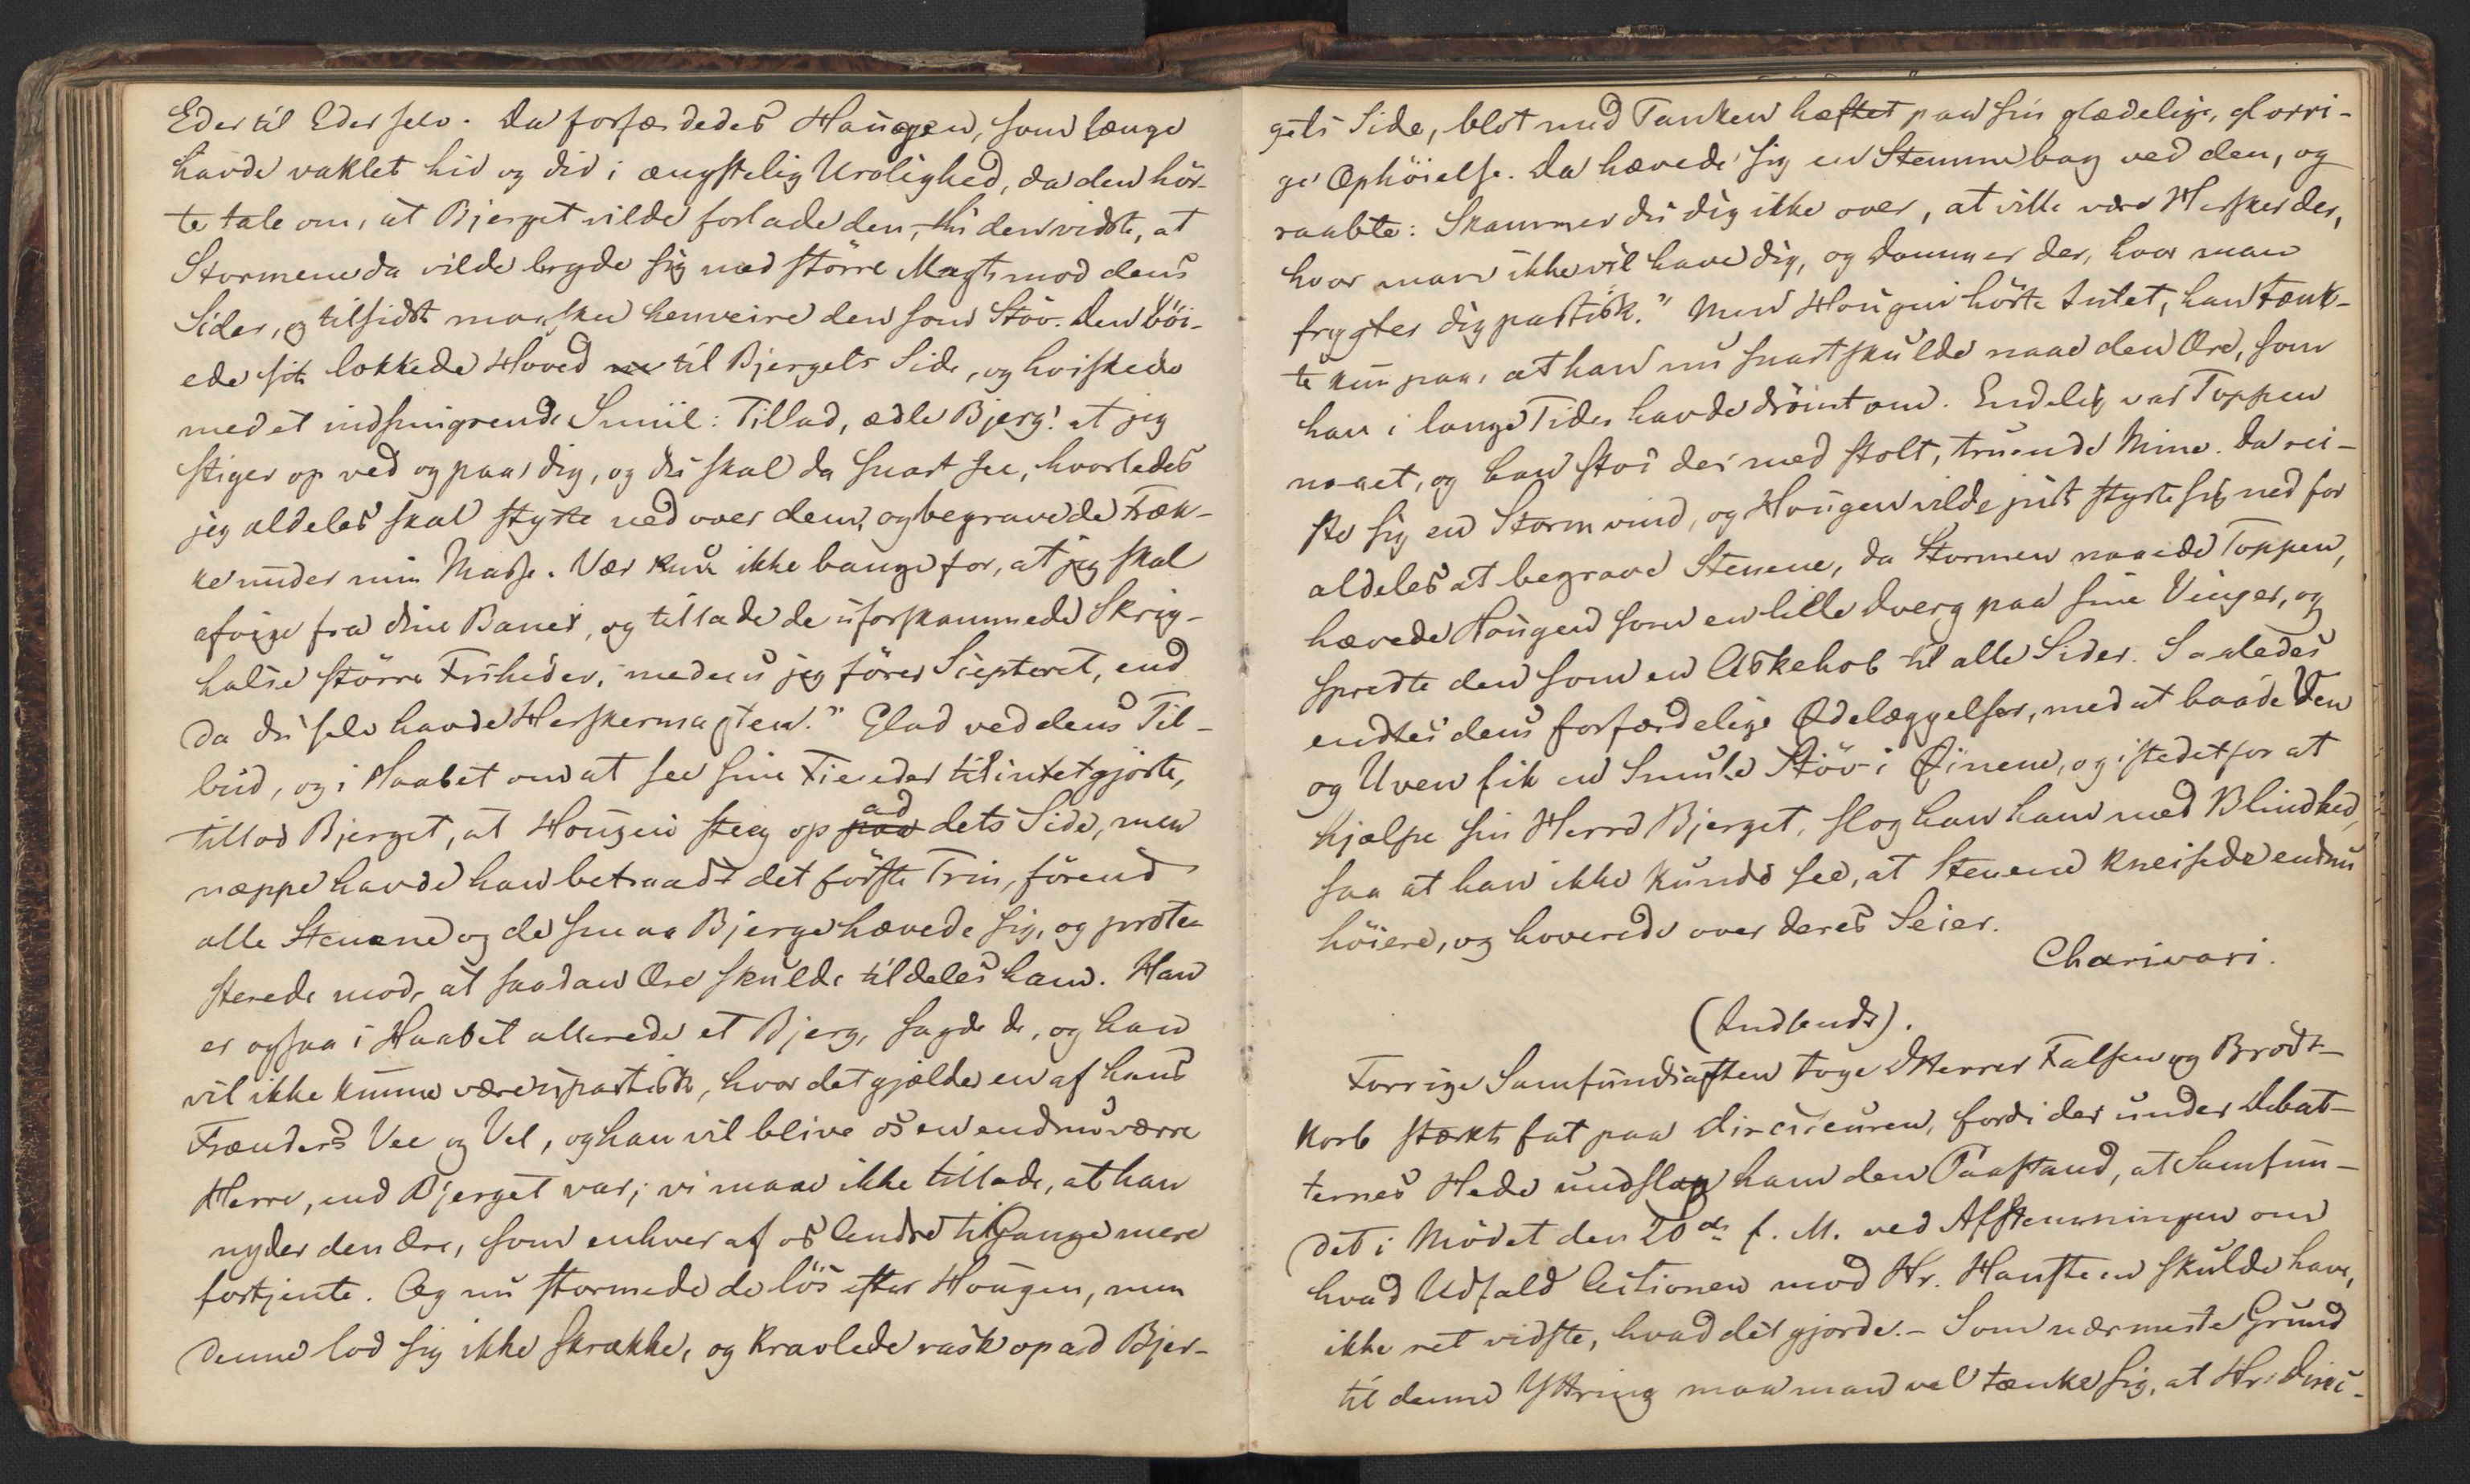 Eder til Eder selv. Da forfærdedes Haugen, som længe
havde vaklet hid og did i ængstelig Urolighed, da den hör-
te tale om, at Bjerget vilde forlade den, thi den vidste, at
Stormene da vilde bryde sig med större Magt mod dens
Sider, og tilsidst maaskee henveire den som Stöv. Den böi-
ede sit lokkede Hoved til Bjergets Side, og hviskede
med et indsmigrende Smiil: Tillad, ædle Bjerg! at jeg
stiger op ved og paa dig, og du skal da snart see, hvorledes
jeg aldeles skal styrte ned over dem, og begrave de Fræk-
ke under min Masse. Vær kun ikke bange for, at jeg skal
afvige fra dine Baner, og tillade de uforskammede Skrig-
halse större Friheder, medens jeg förer Scepteret, end
da du selv havde Herskermagten." Glad ved dens Til-
bud, og i Haabet om at see sine Fiender tilintetgjorte,
tillod Bjerget, at Hougen steeg op paa ad dets Side, men
neppe havde han betraadt det förste Trin, förend
alle Stenene og de smaa Bjerge hævede sig, og prote-
sterede mod, at saadan Ære skulde tildeles ham. Han
er ogsaa i Haabet allerede et Bjerg, sagde de, og han
vil ikke kunne være upartisk, hvor det gjælder en af hans
Frænders Vee og Vel, og han vil blive os en endnu værre
Herre, end Bjerget var; vi maae ikke tillade, at han
nyder den Ære, som enhver af os Andre ti Gange mere
fortjente. Og nu stormede de lös efter Hougen, men
denne lod sig ikke skrække, og kravlede rask op ad Bjer-
gets Side, blot med Tanken hæftet paa sin glædelige, glorri-
ge Ophöielse. Da hævede sig en Stemme bag ved den, og
raabte: Skammer du dig ikke over, at ville være Hersker der,
hvor man ikke vil have dig, og Dommer der, hvor man
frygter dig partisk." Men Hougen hörte Intet, han tænk-
te kun paa, at han nu snart skulde naae den Ære, som
han i lange Tider havde drömt om. Endelig var Toppen
naaet, og han stod der med stolt, truende Mine. Da rei-
ste sig en Stormvind, og Hougen vilde just styrte sig ned for
aldeles at begrave Stenene, da Stormen naaede Toppen,
hævede Hougen som en lille Dverg paa sine Vinger, og
spredte den som en Askehob til alle Sider. Saaledes
endtes dens forfærdelige Ödelæggelser, med at baade Ven
og Uven fik en Smule Stöv i Öinene, og istedetfor at
hjælpe sin Herre Bjerget, slog han ham med Blindhed,
saa at han ikke kunde see, at Stenene kneisede endnu
höiere, og hoverede over deres Seier.
Charivari.
(Indsendt).
Forrige Samfundsaften toge DHerrer Falsen og Brodt-
korb stærkt fat paa Directeuren, fordi der under Debat-
ternes Hede undslap ham den Paastand, at Samfun-
det i Mödet den 20de f. M. ved Afstemningen om
hvad Udfald Actionen mod Hr. Hansteen skulde have,
ikke ret vidste, hvad det gjorde. - Som nærmeste Grund
til denne Yttring maa man vel tænke sig, at Hr. Direc-